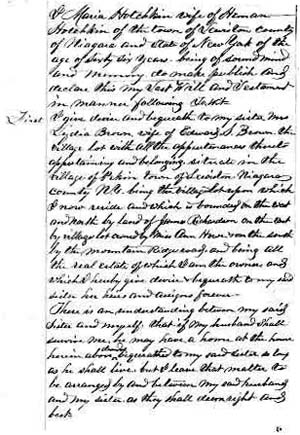 I Maria Hotchkin wife of Heman
Hotchkin of the town of Lewiston county
of Niagara and State of New York of the
age of sixty six years being of sound mind
and memory do make publish and
declare this my Last Will and Testament
in manner following To Wit
First I give devise and bequeath to my sister Mrs
Lydia Brown, wife of Edward S. Brown the
village lot with all the appurtenances thereto
appertaining and belonging situate in the
village of Pekin town of Lewiston Niagara
county N.Y. being the village lot upon which
I now reside and which is bounded on the west
and north by land of James Richardson on the east
by village lot owned by Miss Ann Howe on the south
by the mountain Ridge road, and being all
the real estate of which I am the owner and
which I hereby give devise & bequeath to my said
sister her heirs and assigns forever
There is an understanding between my said
Sister and myself that if my husband shall
survive me, he may have a home at the house
herein above bequeathed to my said sister so long
as he shall live, but I leave that matter to
be arranged by and between my said husband
and my sister as they shall deem right and
best